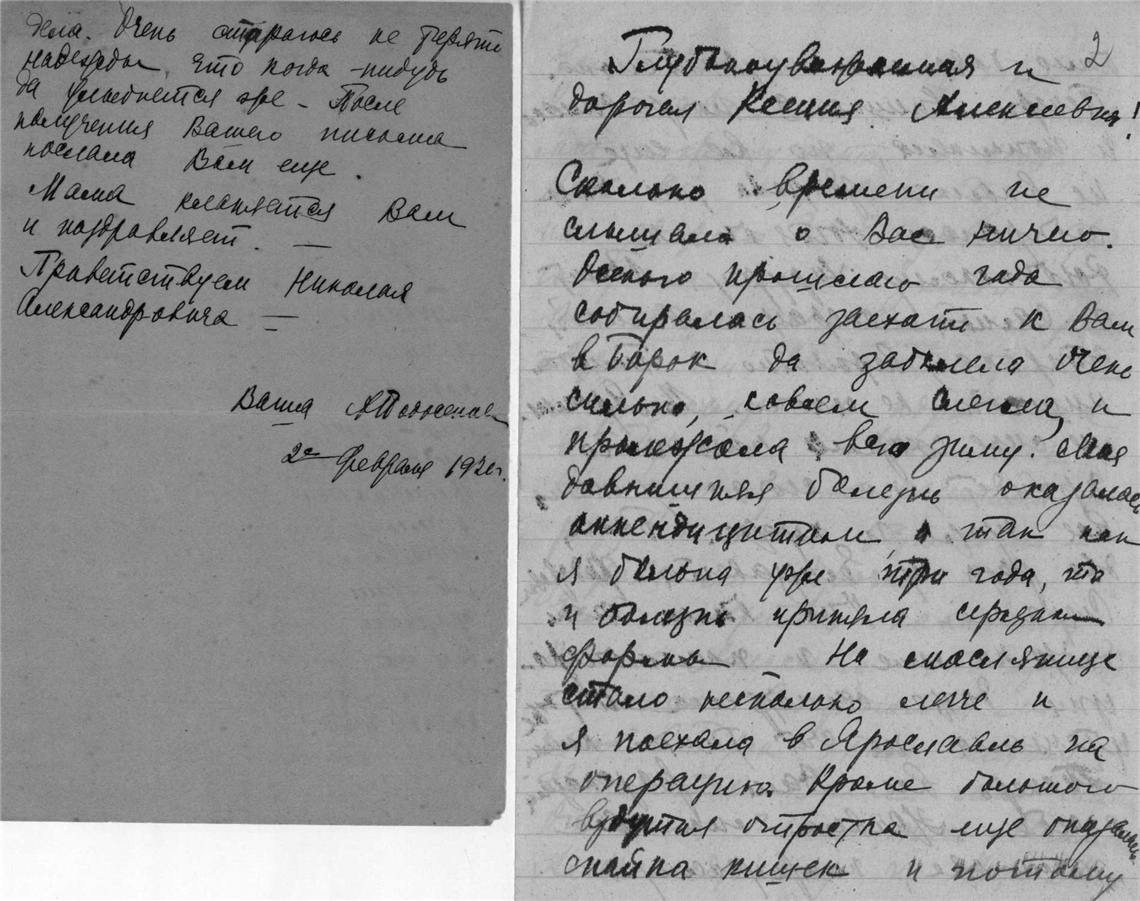 дела. Очень стараюсь не терять
надежды, что когда-нибудь
да улыбнется здес - После
получения Вашего письма
послала Вам еще.
Мама кланяется Вам
и поздравляет. —
Приветствуем Николая
Александровича —
Ваша
2го февраля 192 г.
2
Глубокоуважаемая и
дорогая Ксения Алексеевна!
Сколько времени не
слышала о Вас ничего.
Осенью прошлого года
собиралась заехать к Вам
в Борок да заболела очень
сильно, совсем слегла, и
пролежала всю зиму. Моя
давнишняя болезнь оказалась
аппендицитом, а так как
я больна уже три года, то
и болезнь приняла серьезные
формы На масляннице
стало несколько легче и
я поехала в Ярославль на
операцию. Кроме большого
вздутия отростка еще оказалась
спайка кишек и потому